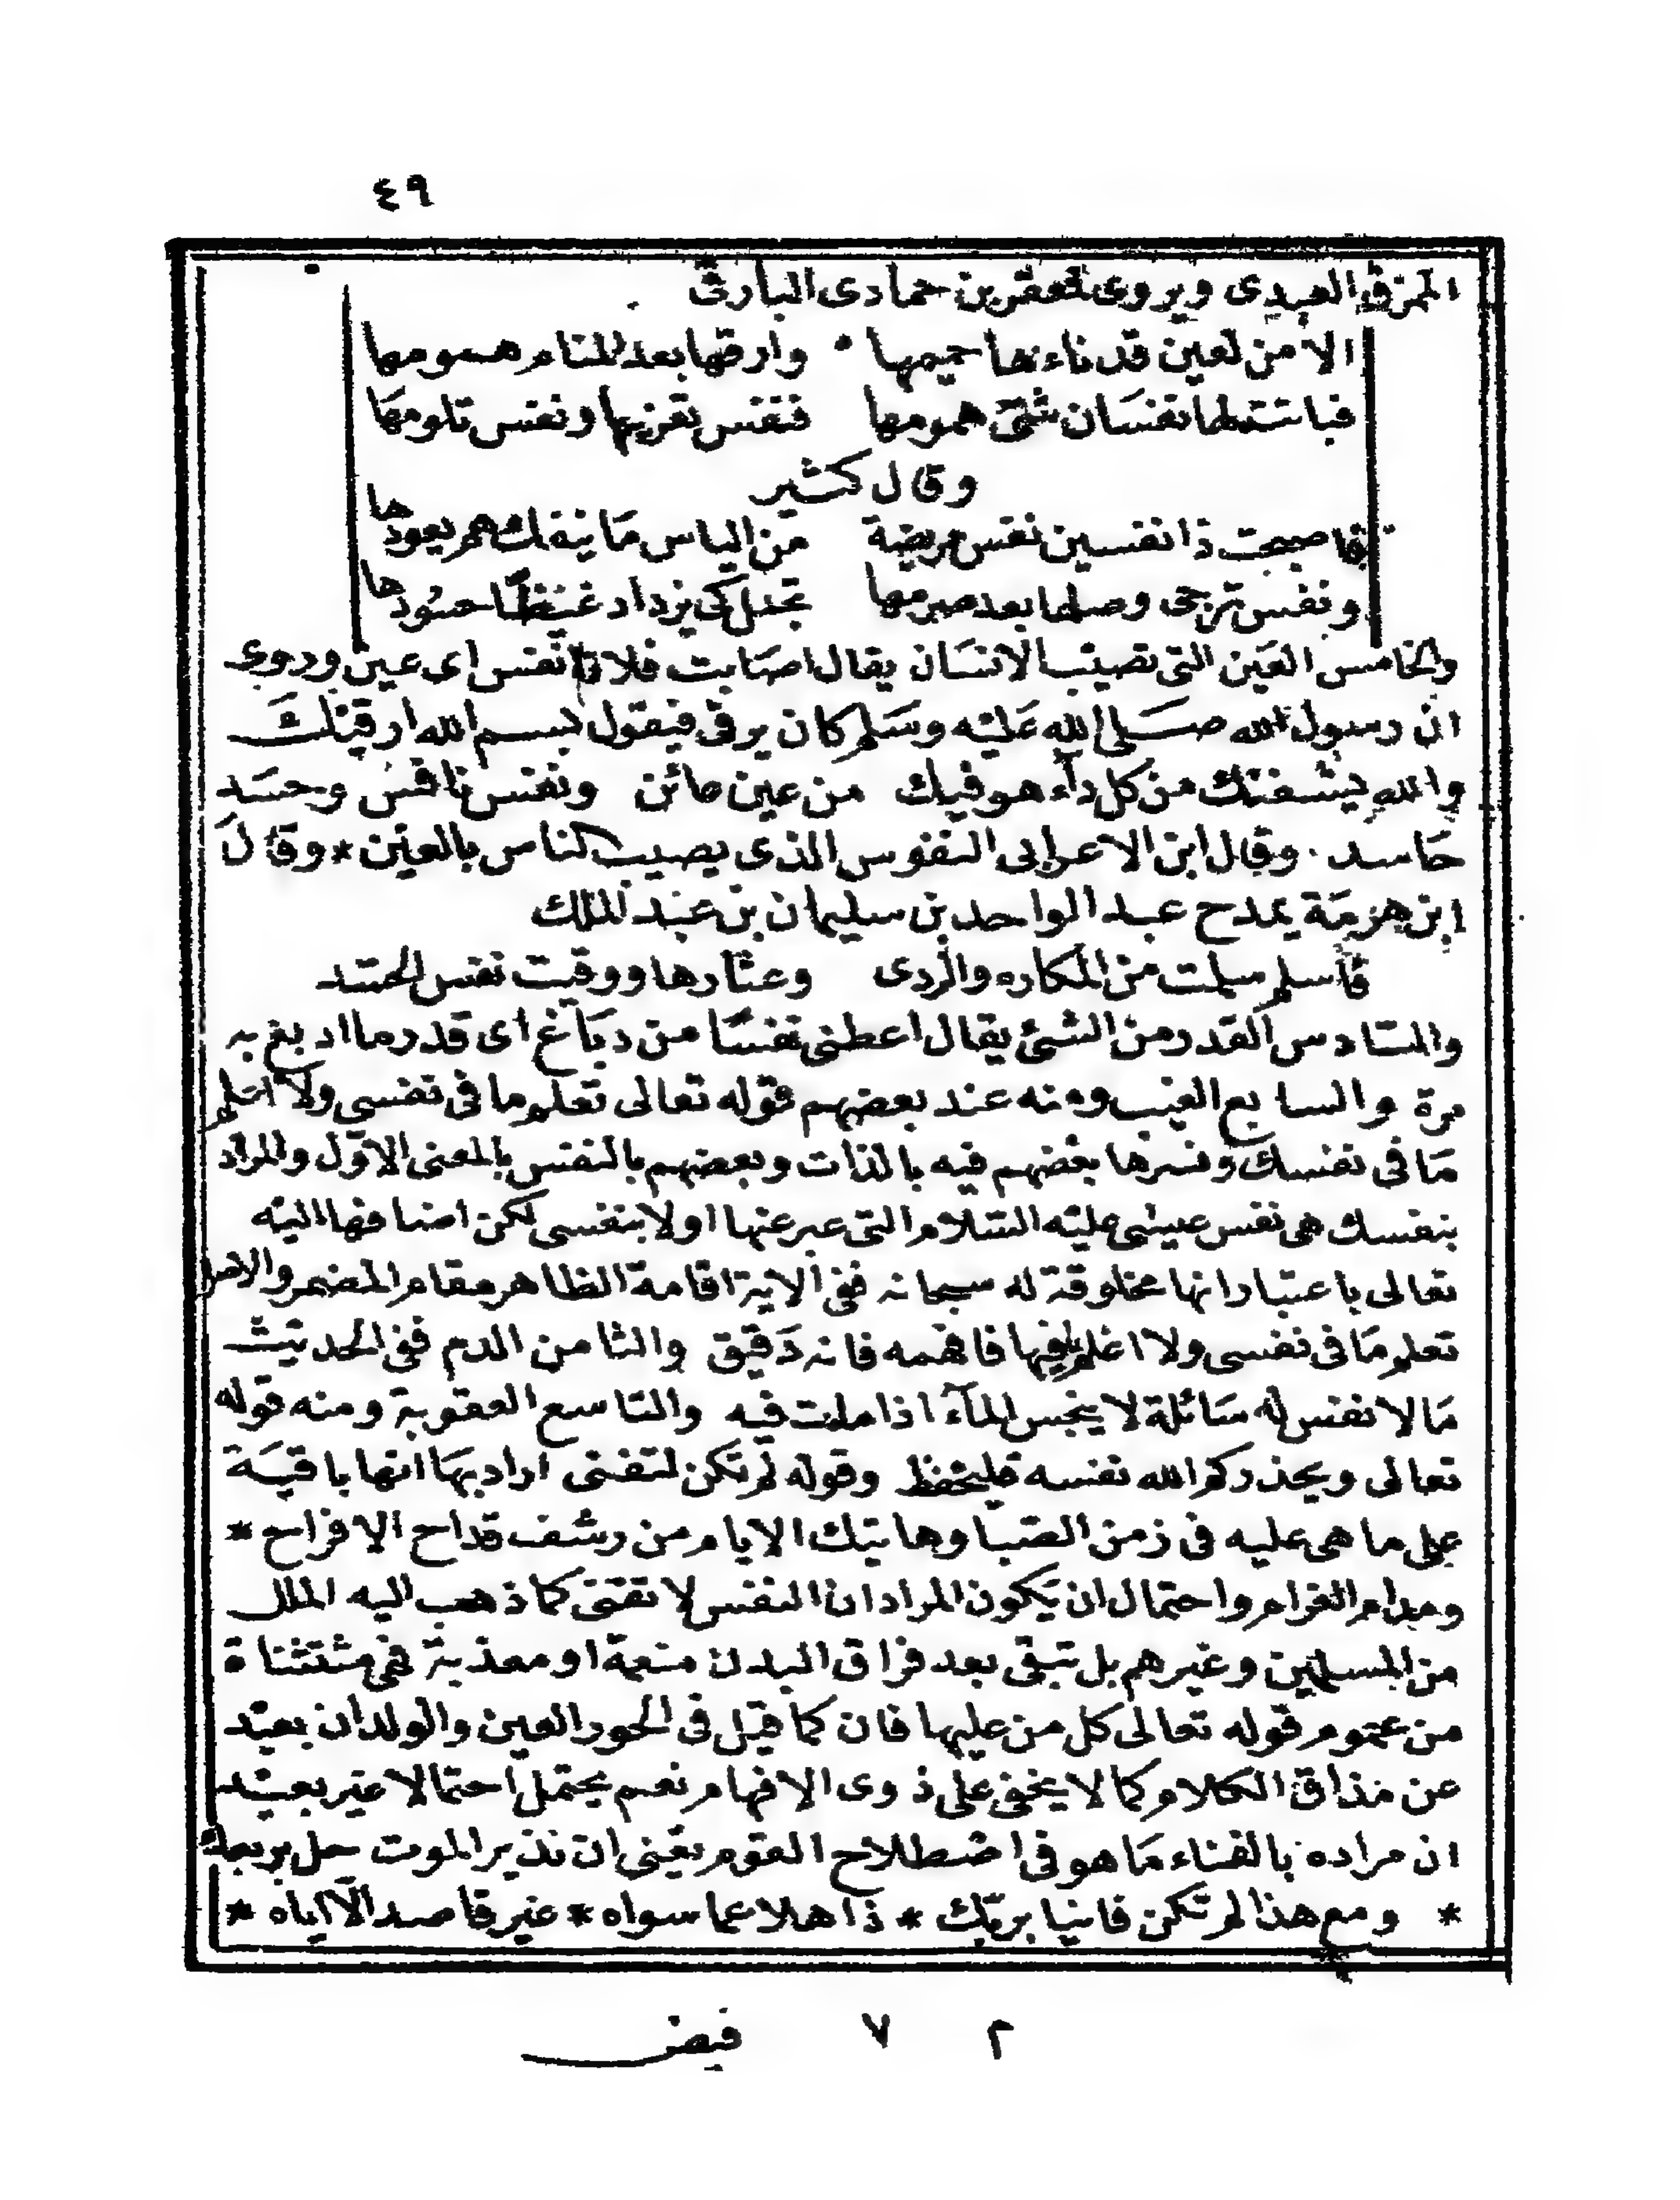 ٤٩
الممزق العبدى ويروى لمعقر بن حمادى البارقى
الا من لعين قد ناءها حميمها وارقها بعد المنام همومها
فباتت لها نفسان شتى همومها فنفس تعزيها ونفس تلومها
وقال كثير
فاصبحت ذا نفسين نفس مريضة من الياس ما ينفك هم يعودها
ونفس ترجى وصلها بعد صرمها تجمل كى يزداد غيظا حسودها
والخامس العين التى تصيب الانسان يقال اصابت فلانا نفس اى عين وروى
ان رسول الله صلى الله عليه وسلم كان يرقى فيقول بسم الله ارقيك
والله يشفيك من كل داء هو فيك من عين عائن ونفس نافس وحسد
حاسد . وقال ابن الاعرابى النفوس الذى يصيب الناس بالعين * وقال
ابن هرمة يمدح عبد الواحد بن سليمان بن عبد الملك
فاسلم سلمت من المكاره والردى وعثارها ووقيت نفس الحسد
والسادس القدر من الشئ يقال اعطنى نفسا من دباغ اى قدر ما ادبغ به
مرة والسابع الغيب ومنه عند بعضهم قوله تعالى تعلم ما فى نفسى ولا اعلم
ما فى نفسك وفسرها بعضهم فيه بالذات وبعضهم بالنفس بالمعنى الاول والمراد
بنفسك هى نفس عيسى عليه السلام التى عبر عنها اولا بنفسى لكن اضافها اليه
تعالى باعتبار انها مخلوقة له سبحانه ففى الاية اقامة الظاهر مقام المضمر والاصل
تعلم ما فى نفسى ولا اعلم ما فيها فافهمه فانه دقيق والثامن الدم ففى الحديث
ما لا نفس له سائلة لا ينجس الماء اذا مات فيه والتاسع العقوبة ومنه قوله
تعالى ويحذركم الله نفسه فليحفظ وقوله لم تكن لتفنى اراد بها انها باقية
على ما هى عليه فى زمن الصبا وهاتيك الايام من رشف قداح الافراح *
ومدام الغرام واحتمال ان يكون المراد ان النفس لا تفنى كما ذهب اليه الملل
من المسلمين وغيرهم بل تبقى بعد فراق البدن منعمة او معذبة فهى مستثناة
من عموم قوله تعالى كل من عليها فان كما قيل فى الحور العين والولدان بعيد
عن مذاق الكلام كما لا يخفى على ذوى الافهام نعم يحتمل احتمالا غير بعيد
ان مراده بالفناء ما هو فى اصطلاح القوم يعنى ان نذير الموت حل بربعك
* ومع هذا لم تكن فانيا بربك * ذاهلا عما سواه * غير قاصد الا اياه *
٢ ٧ فيض